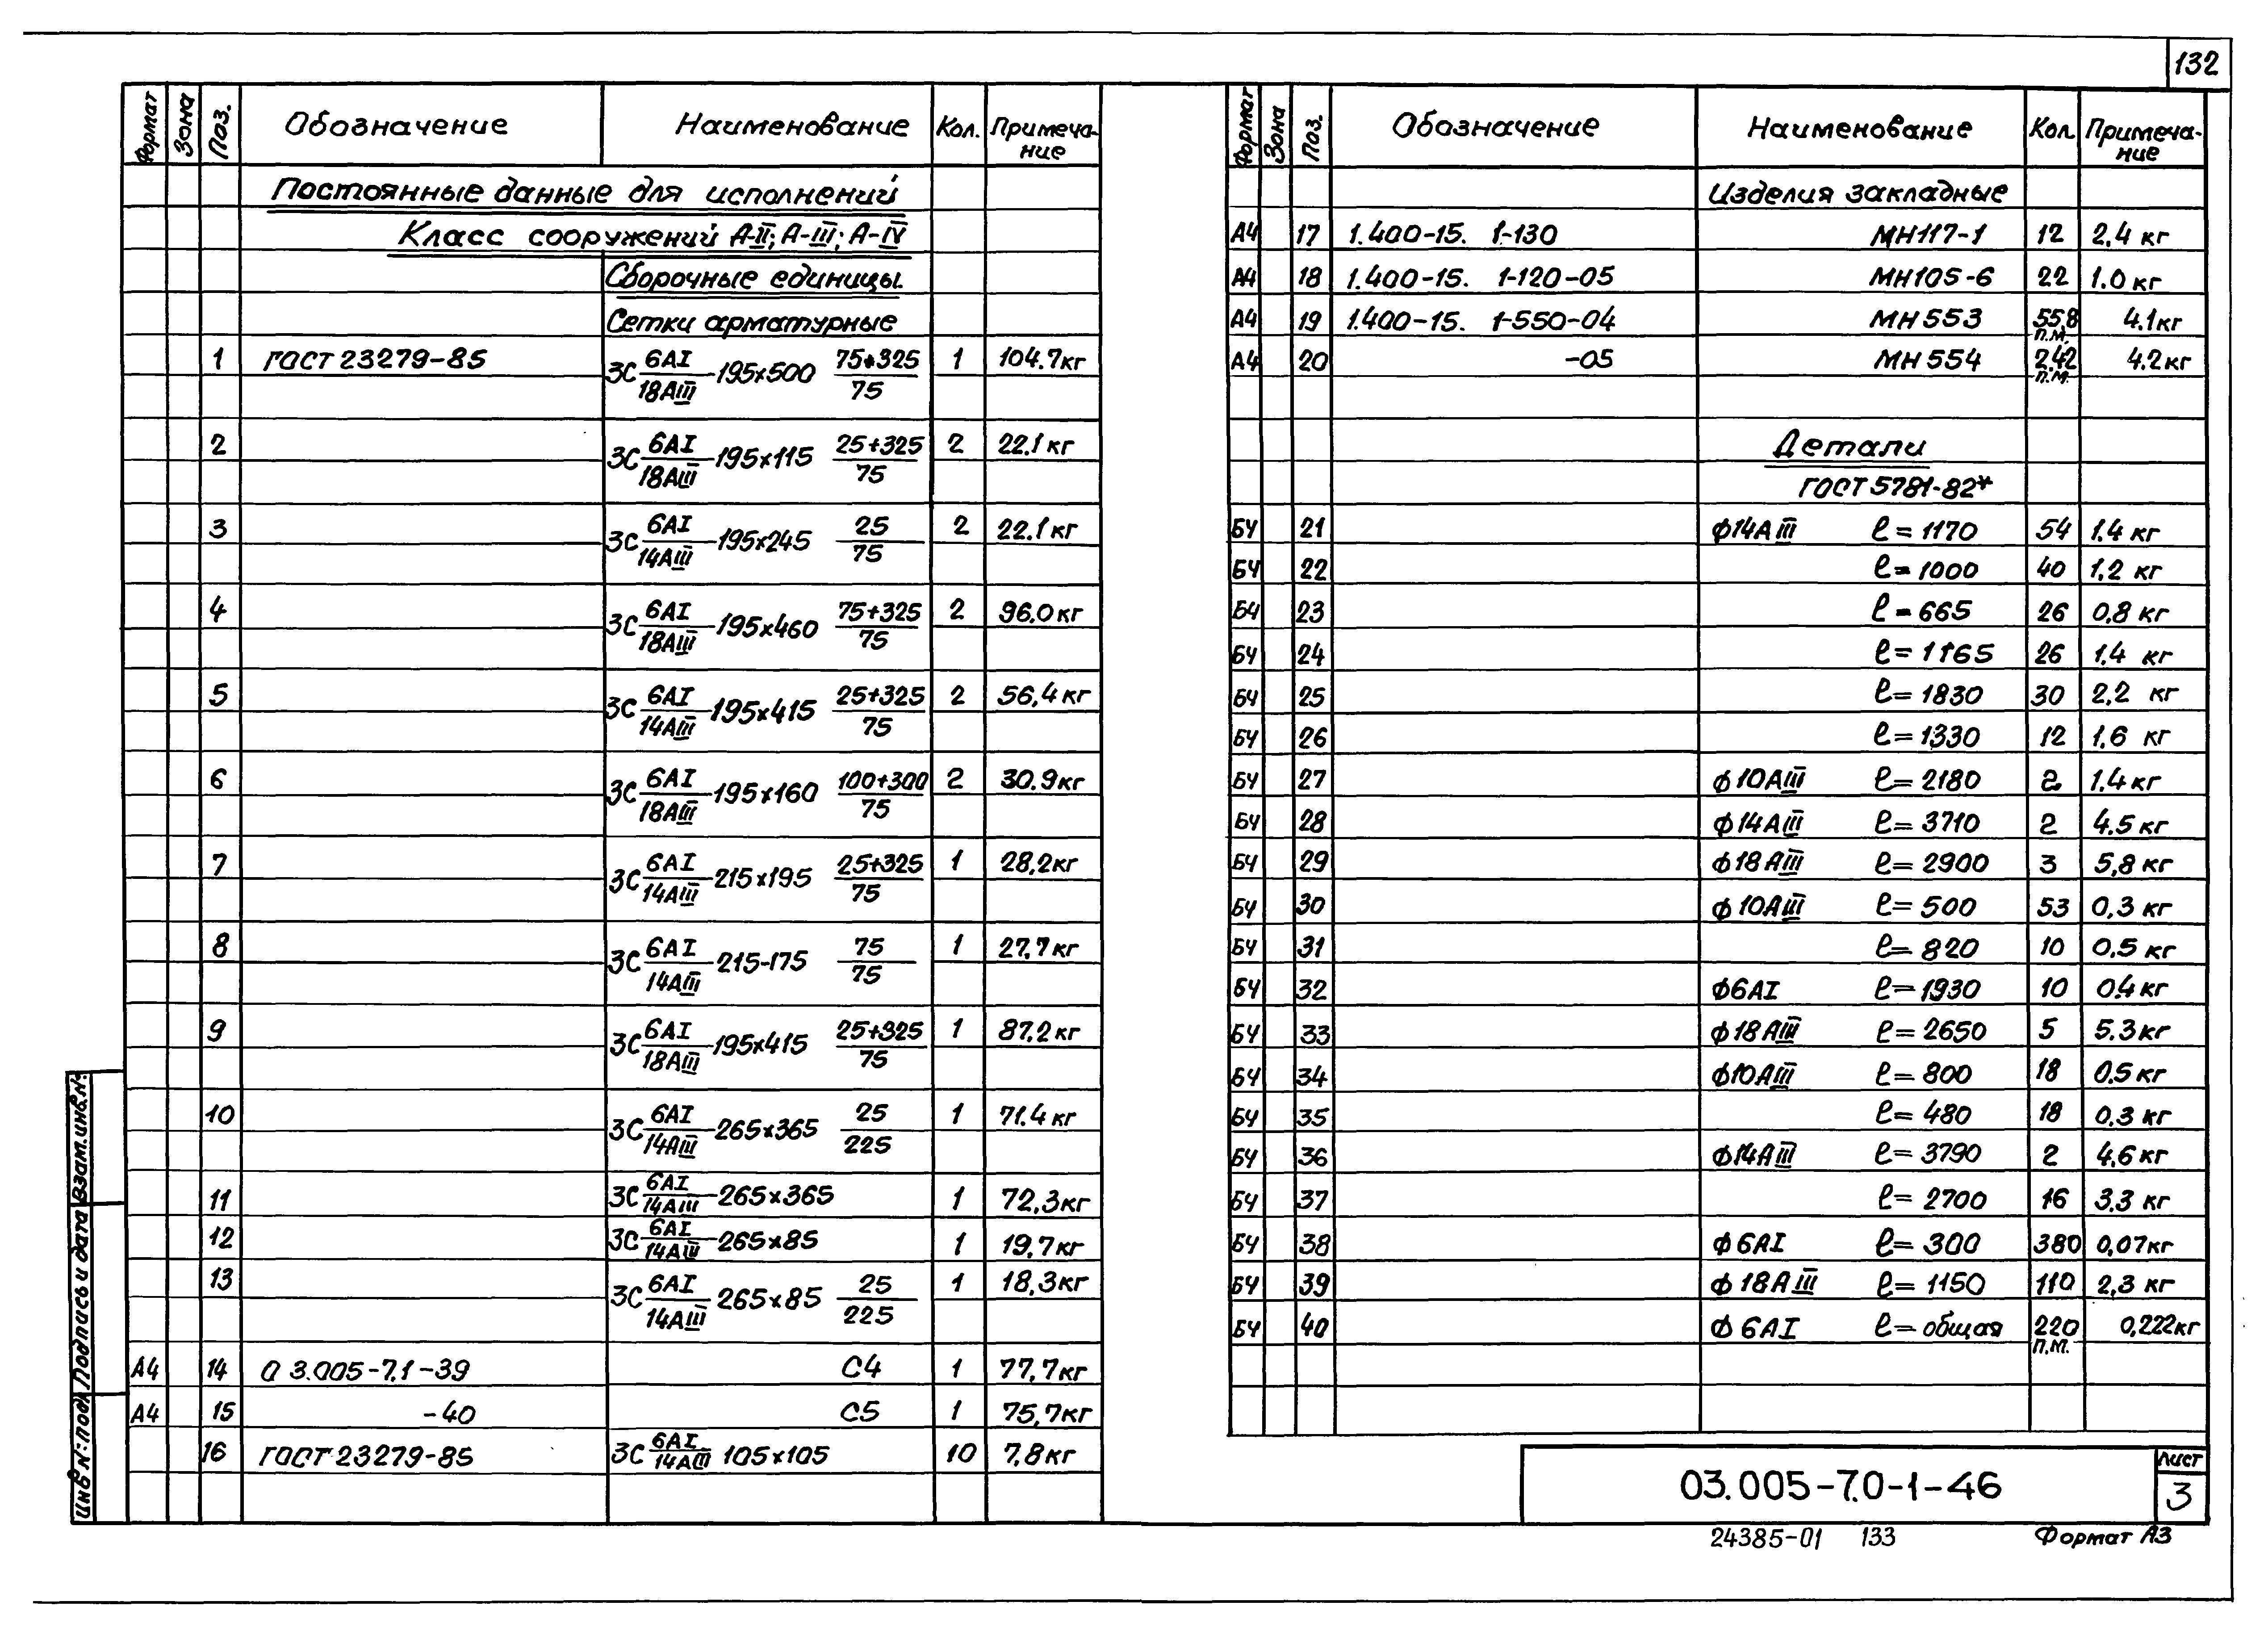 132
Формат Зона Поз. Обозначение Наименование Кол. Примеча-
ние
Постоянные данные для исполнений
Класс сооружений А-II; А-III; А-IV
Сборочные единицы.
Сетки арматурные
1 ГОСТ 23279-85 3С 6АI/18АIII -195×500 75+325/75 1 104.7кг
2 3С 6АI/18АIII -195×115 25+325/75 2 22.1кг
3 3С 6АI/14АIII -195×245 25/75 2 22.1кг
4 3С 6АI/18АIII -195×460 75+325/75 2 96.0кг
5 3С 6АI/14АIII -195×415 25+325/75 2 56,4кг
6 3С 6АI/18АIII -195×160 100+300/75 2 30.9кг
7 3С 6АI/14АIII -215×195 25+325/75 1 28,2кг
8 3С 6АI/14АIII -215-175 75/75 1 27.7кг
9 3С 6АI/18АIII -195×415 25+325/75 1 87.2кг
10 3С 6АI/14АIII -265×365 25/225 1 71.4кг
11 3С 6АI/14АIII -265×365 1 72,3кг
12 3С 6АI/14АIII -265×85 1 19,7кг
13 3С 6АI/14АIII -265×85 25/225 1 18,3кг
А4 14 0 3.005-7.1-39 С4 1 77,7кг
А4 15 -40 С5 1 75,7кг
16 ГОСТ 23279-85 3С 6АI/14АIII 105×105 10 7.8кг
Формат Зона Поз. Обозначение Наименование Кол. Примеча-
ние
Изделия закладные
А4 17 1.400-15. 1-130 МН117-1 12 2,4 кг
А4 18 1.400-15. 1-120-05 МН105-6 22 1.0 кг
А4 19 1.400-15. 1-550-04 МН 553 55,8 п.м. 4.1кг
А4 20 -05 МН 554 2,42 п.м. 4.2кг
Детали
ГОСТ 5781-82*
БЧ 21 ф14АIII ℓ=1170 54 1.4 кг
БЧ 22 ℓ=1000 40 1,2 кг
БЧ 23 ℓ=665 26 0,8 кг
БЧ 24 ℓ=1165 26 1.4 кг
БЧ 25 ℓ=1830 30 2,2 кг
БЧ 26 ℓ=1330 12 1,6 кг
БЧ 27 ф10АIII ℓ=2180 2 1.4кг
БЧ 28 ф14АIII ℓ=3710 2 4.5кг
БЧ 29 ф18АIII ℓ=2900 3 5,8 кг
БЧ 30 ф10АIII ℓ=500 53 0,3 кг
БЧ 31 ℓ=820 10 0,5 кг
БЧ 32 ф6АI ℓ=1930 10 0.4кг
БЧ 33 ф18АIII ℓ=2650 5 5.3кг
БЧ 34 ф10АIII ℓ=800 18 0.5кг
БЧ 35 ℓ=480 18 0,3 кг
БЧ 36 ф14АIII ℓ=3790 2 4,6кг
БЧ 37 ℓ=2700 16 3.3 кг
БЧ 38 ф6АI ℓ=300 380 0,07кг
БЧ 39 ф18АIII ℓ=1150 110 2,3 кг
БЧ 40 ф6АI ℓ=общая 220 п.м. 0,222кг
Инв N: подл. Подпись и дата Взам.инв.N:
03.005-7.0-1-46
Лист
3
24385-01 133 Формат А3